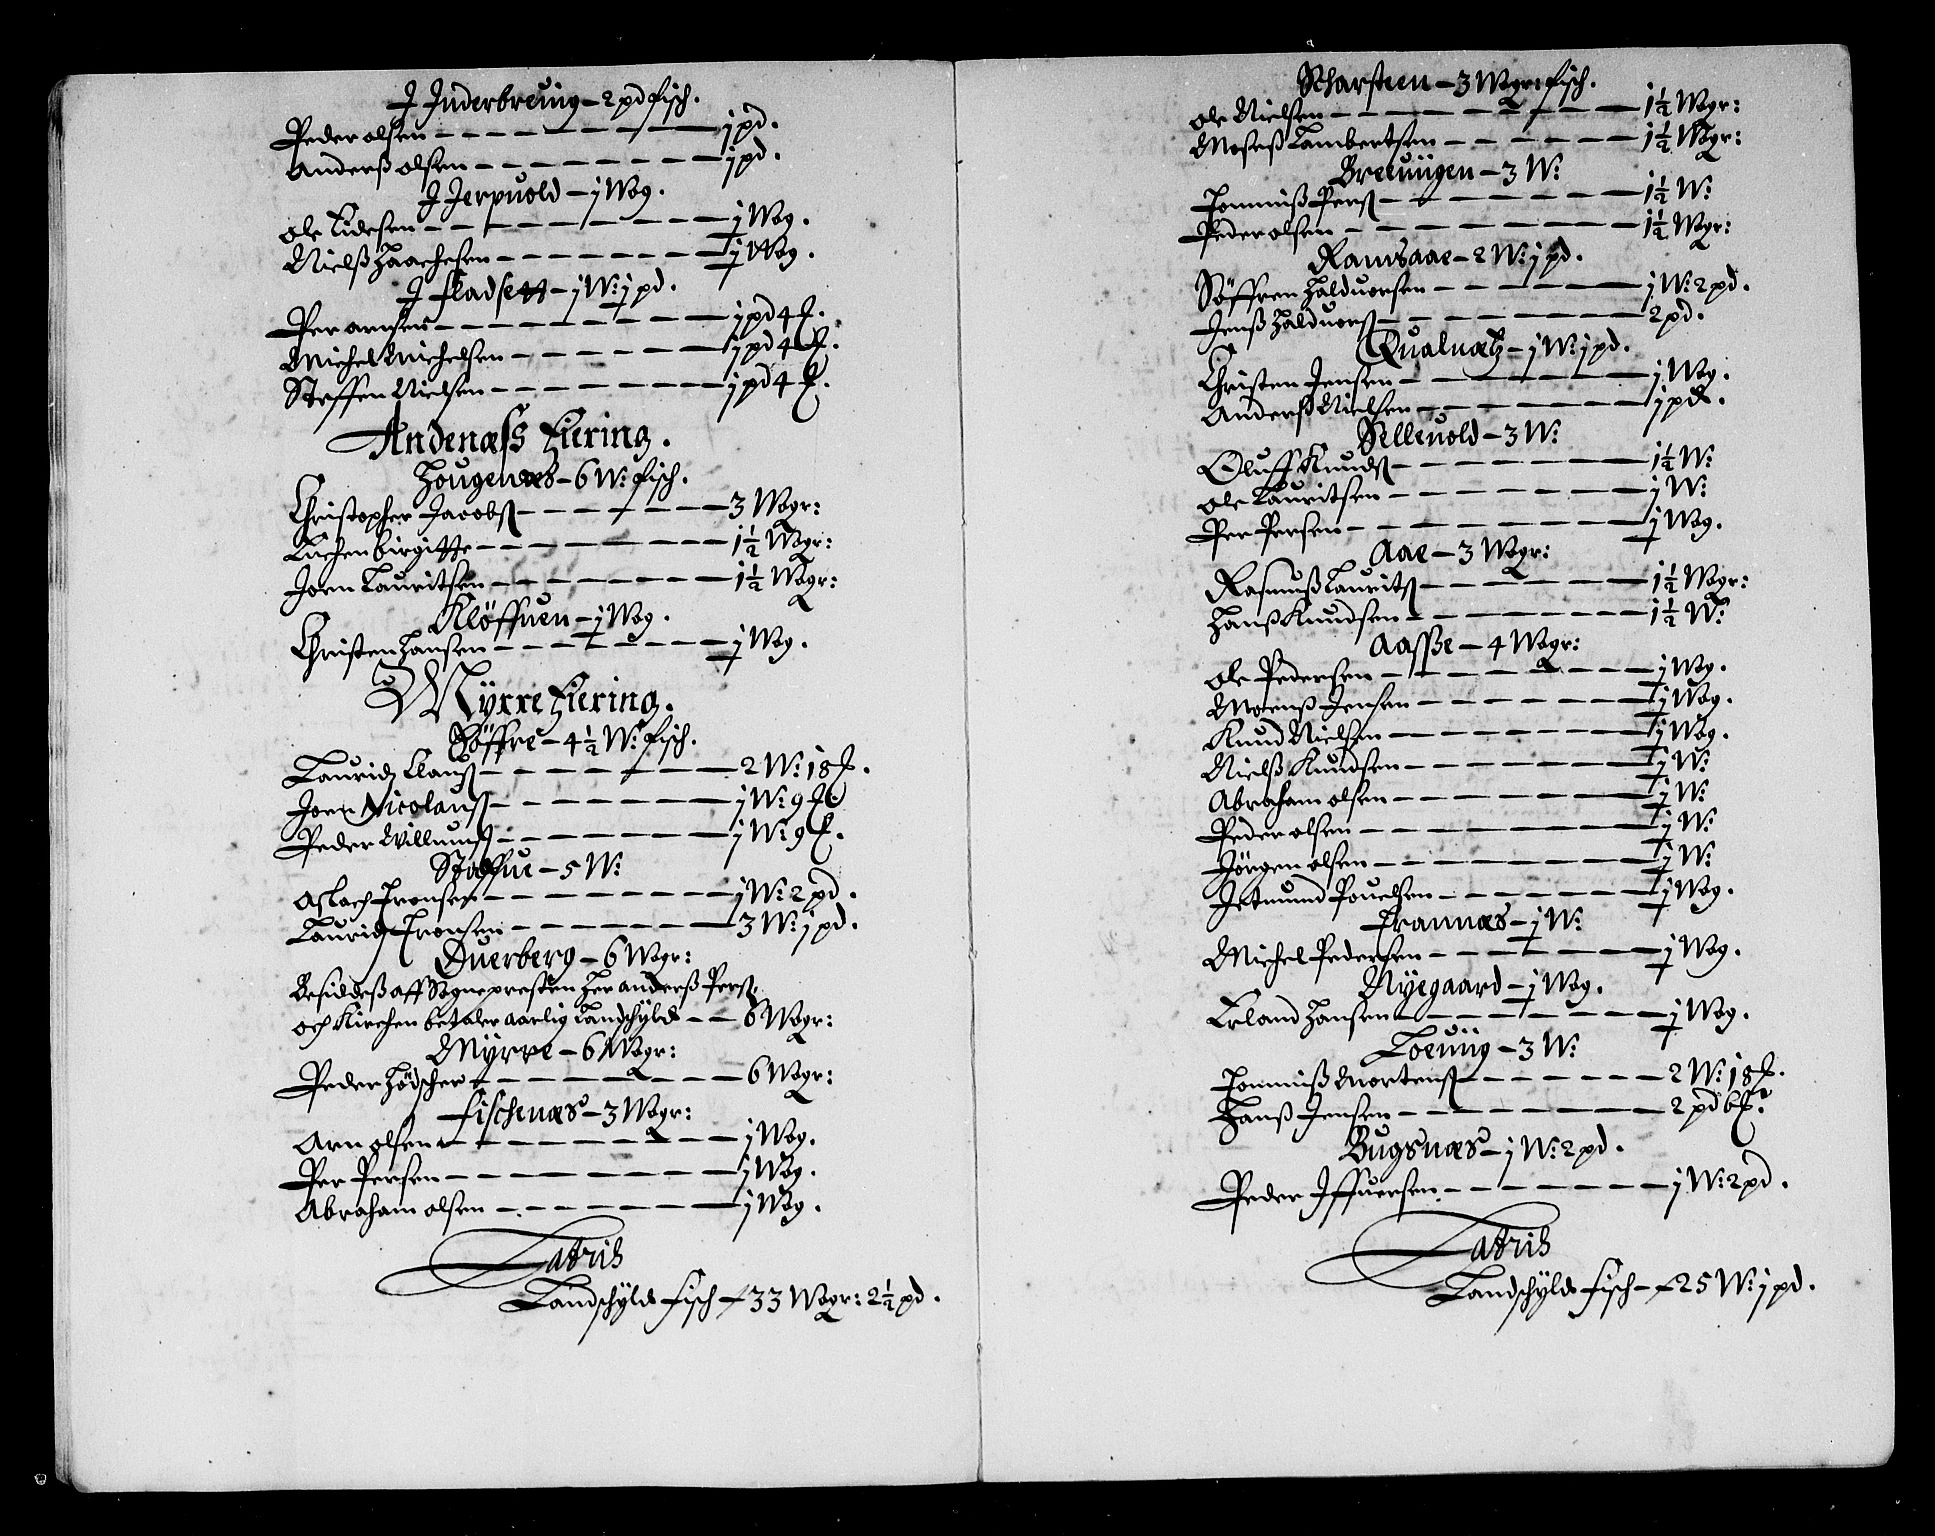 I Inderbreuig - 2 pd fisch.
Peder olsen - 1 pd.
Anderß olsen - 1 pd.
I Jerpuold - j Wog.
ole Tidesen - j Wog.
Nielß Haachesen - j Wog.
I Fladsett - j W: j pd.
Per arnsen - 1 pd 4 £.
Michel Michelsen - 1 pd 4 £.
Steffen Nielsen - 1 pd 4 £.
Andenæss Fiering.
Hougenæs - 6 W: fisch.
Christopher Jacobß - 3 Wogr:
Enchen birgitte - 1½ Wogr:
Joen Lauritsen - 1½ Wogr:
Kløffuen - j Wog.
Christen Hansen - j Wog.
Myrre Fiering.
Søffre - 4½ W: fisch.
Laurids Clauß - 2 W: 18 £.
Joen Nicolauß - j W: 9 £.
Peder Willumß - j W: 9 £.
Staffue - 5 W:
Aslach Tronsen - j W: 2 pd.
Laurids Tronsen - 3 W: j pd.
Querberg - 6 Wogr:
Besiddeß aff Sognepresten Her anderß Perß
och Kirchen betaler aarlig Landschyld - 6 Wogr:
Myrre - 6 Wogr:
Peder Hødscher - 6 Wogr:
Fischenæs - 3 Wogr:
Arn olsen - j Wog.
Per Persen - j Wog.
Abraham olsen - j Wog.
Latris
Landschyld Fisch - 33 Wogr: 2½ pd.
Scharsteen - 3 Wogr fisch.
ole Nielsen - 1½ Wogr:
Moseß Lambertsen - 1½ Wogr:
Breuiigen - 3 W:
Tommiß Perß - 1½ W:
Peder olsen - 1½ Wogr:
Ramsaae - 2 W: j pd.
Søffren Halduorsen - j W: 2 pd.
Jenß Halduorß - 2 pd.
Qualnæs - j W: j pd.
Christen Jensen - j Wog.
Anderß Nielsen - 1 pd.
Selleuold - 3 W:
Oluff Knudß - 1½ W:
ole Lauritsen - j W:
Per Persen - j Wog.
Aae - 3 Wogr:
Rasmuß Lauritß - 1½ Wogr:
Hanß Knudsen - 1½ W:
Aasße - 4 Wogr:
ole Pedersen - ½ Wog.
Moenß Jensen - ½ Wog.
Knud Nielsen - ½ Wog.
Nielß Knudsen - ½ W:
Abraham olsen - ½ W:
Peder olsen - ½ W:
Jørgen olsen - ½ W:
Jetmund Pouelsen - ½ Wog.
Trannæs - j W:
Michel Pedersen - j Wog.
Nyegaard - j Wog.
Erland Hansen - j Wog.
Loeuiig - 3 W:
Tommiß Mortenß - 2 W: 18 £.
Hanß Jensen - 2 pd 6 £.
Bugsnæs - j W: 2 pd.
Peder Iffuersen - j W: 2 pd.
Latris
Landschyld Fisch - 25 W: j pd.